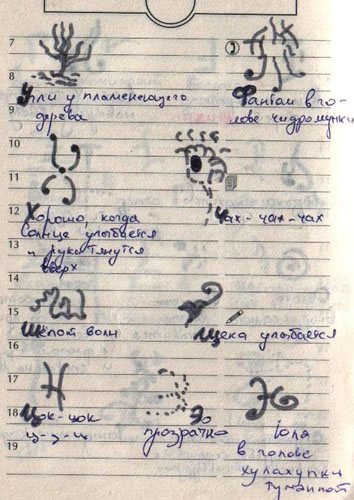 7
8
Угли у пламенеющего
9
дерева
2
Фантом в го-
лове
10
11
12
Хорошо, когда
Солнце улыбается
13
и руки тянутся
вверх
Чах-чах-чах
14
15
16
Шёпот волн
Щека улыбается
17
18
Цок-цок
ц-э-ц
прозрачно
в голове
хулахупки
туманной
19